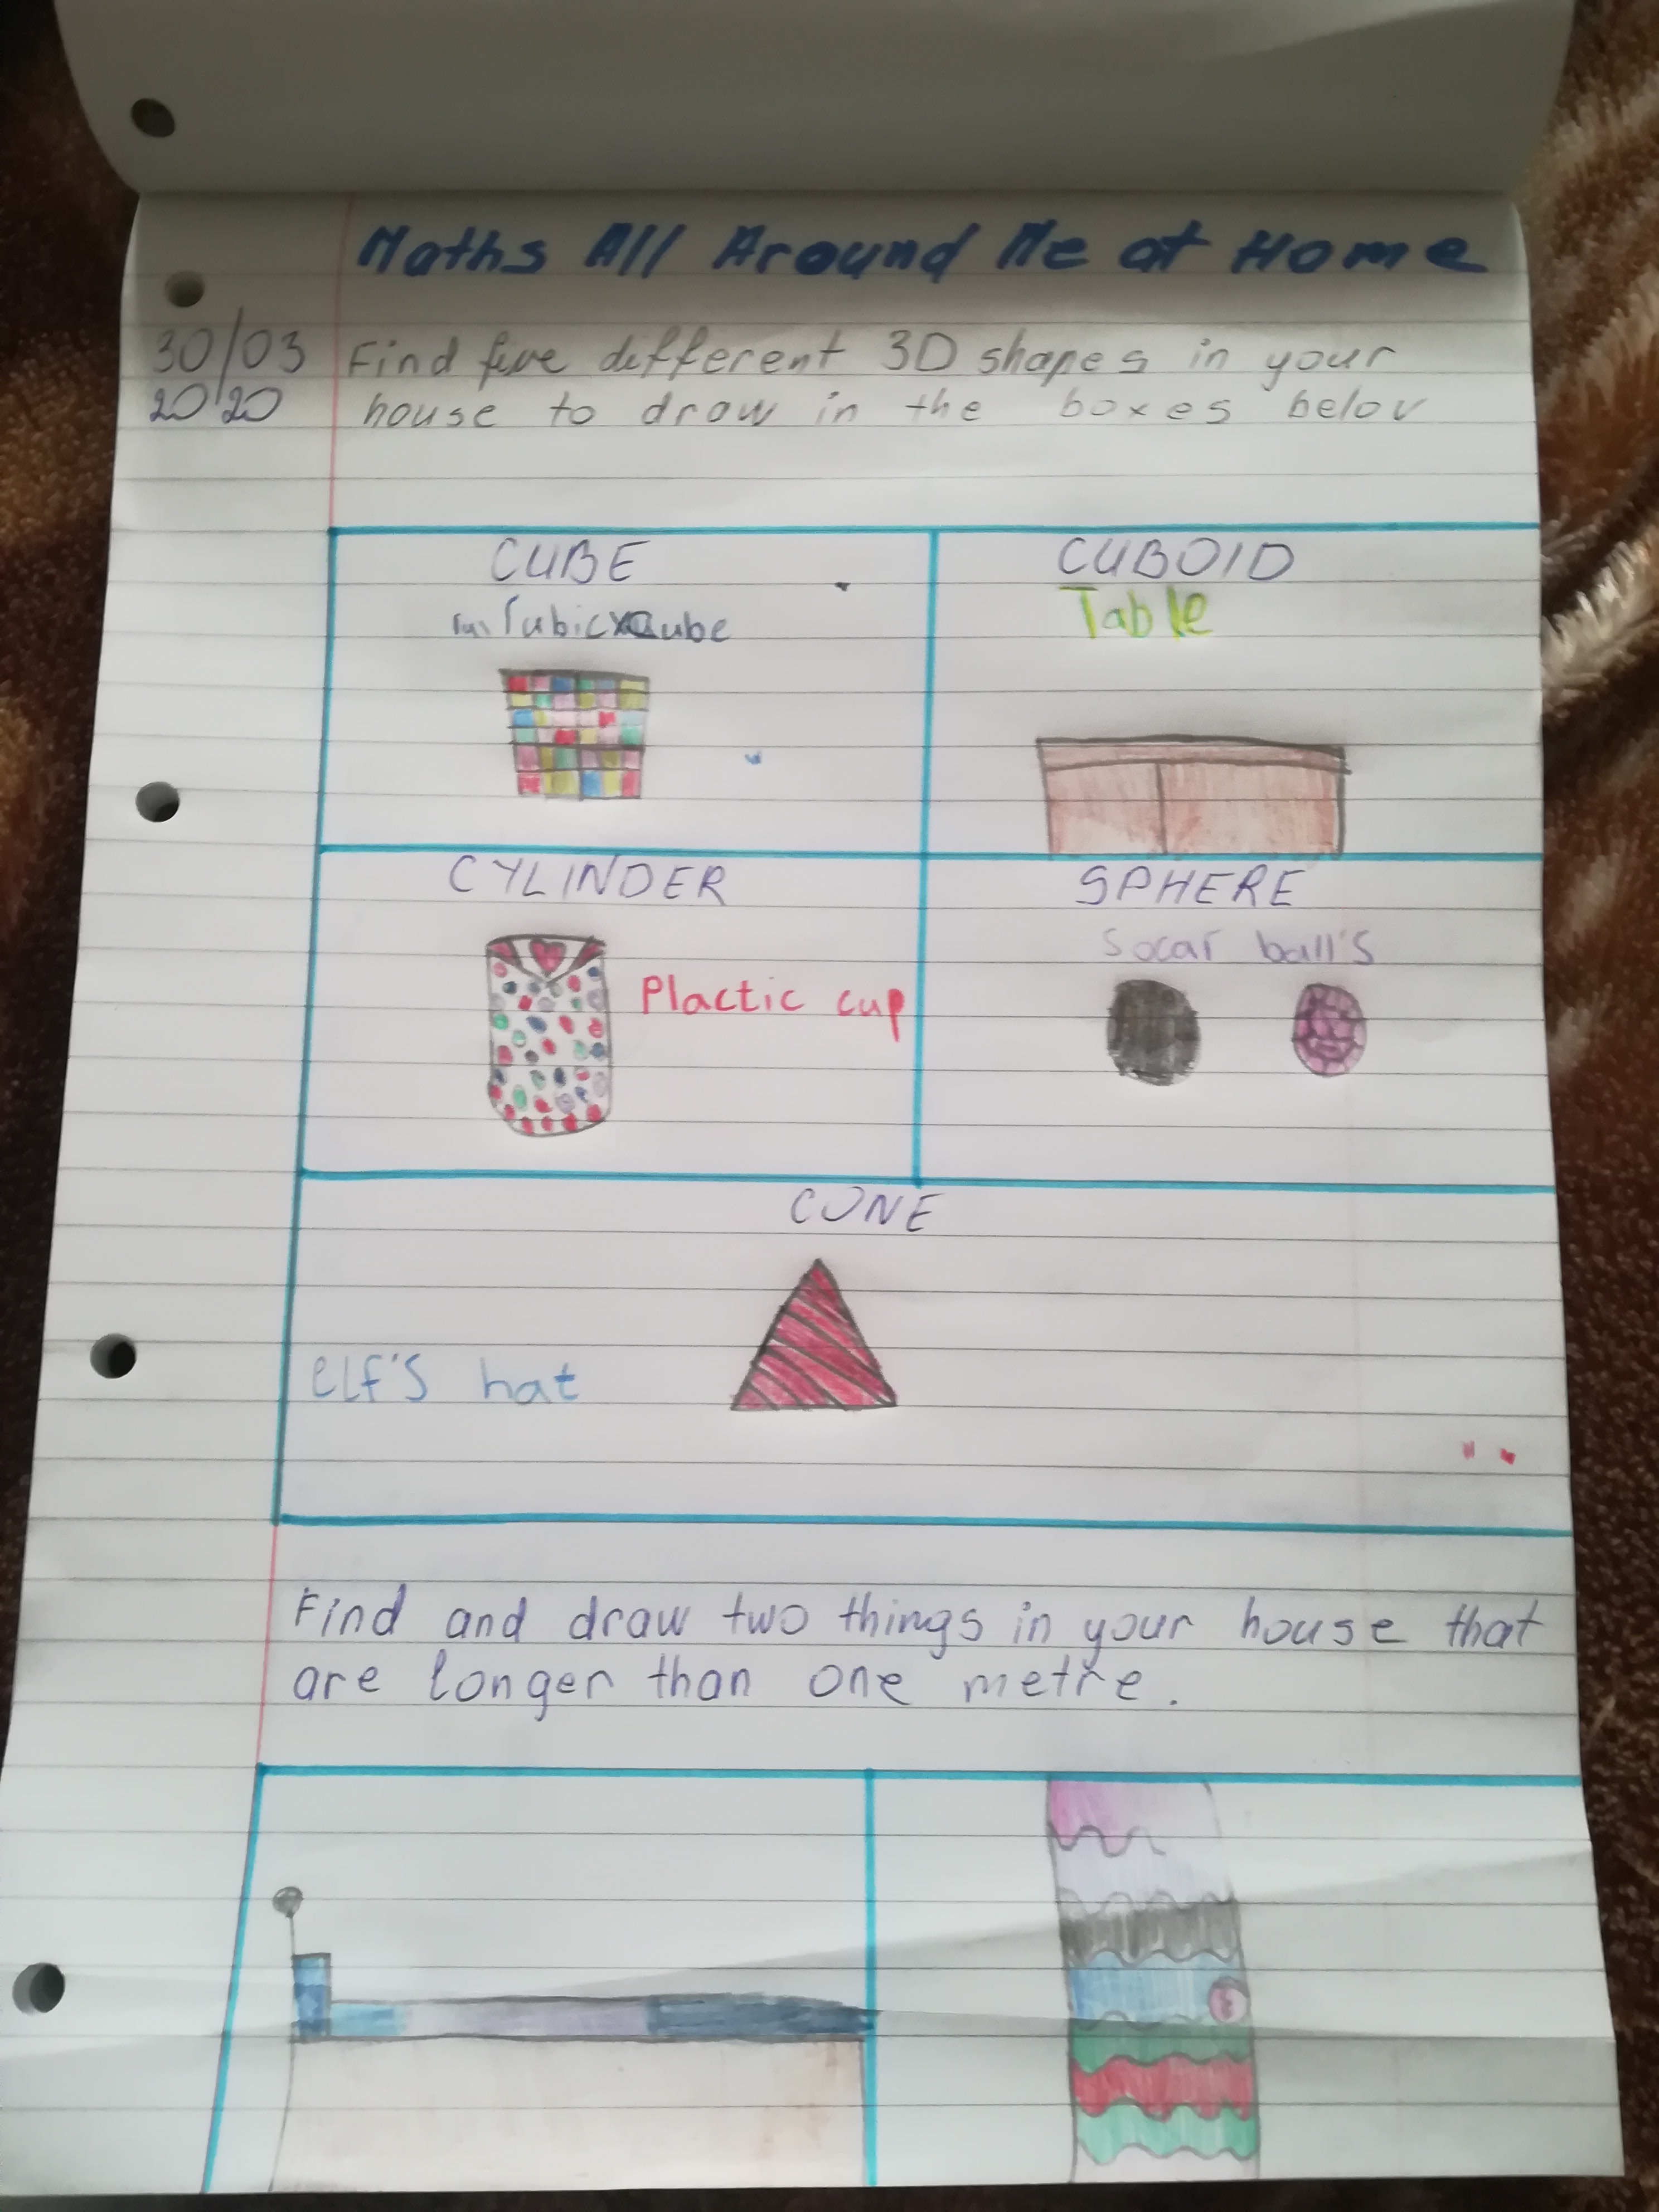 Maths All Around Me at Home
30/03 Find five different 3D shapes in your
2020 house to draw in the boxes below
CUBE
CUBOID
Table
CYLINDER
Plactic cup
SPHERE
Socar ball's
CONE
elf's hat
Find and draw two things in your house that
are longer than one metre.